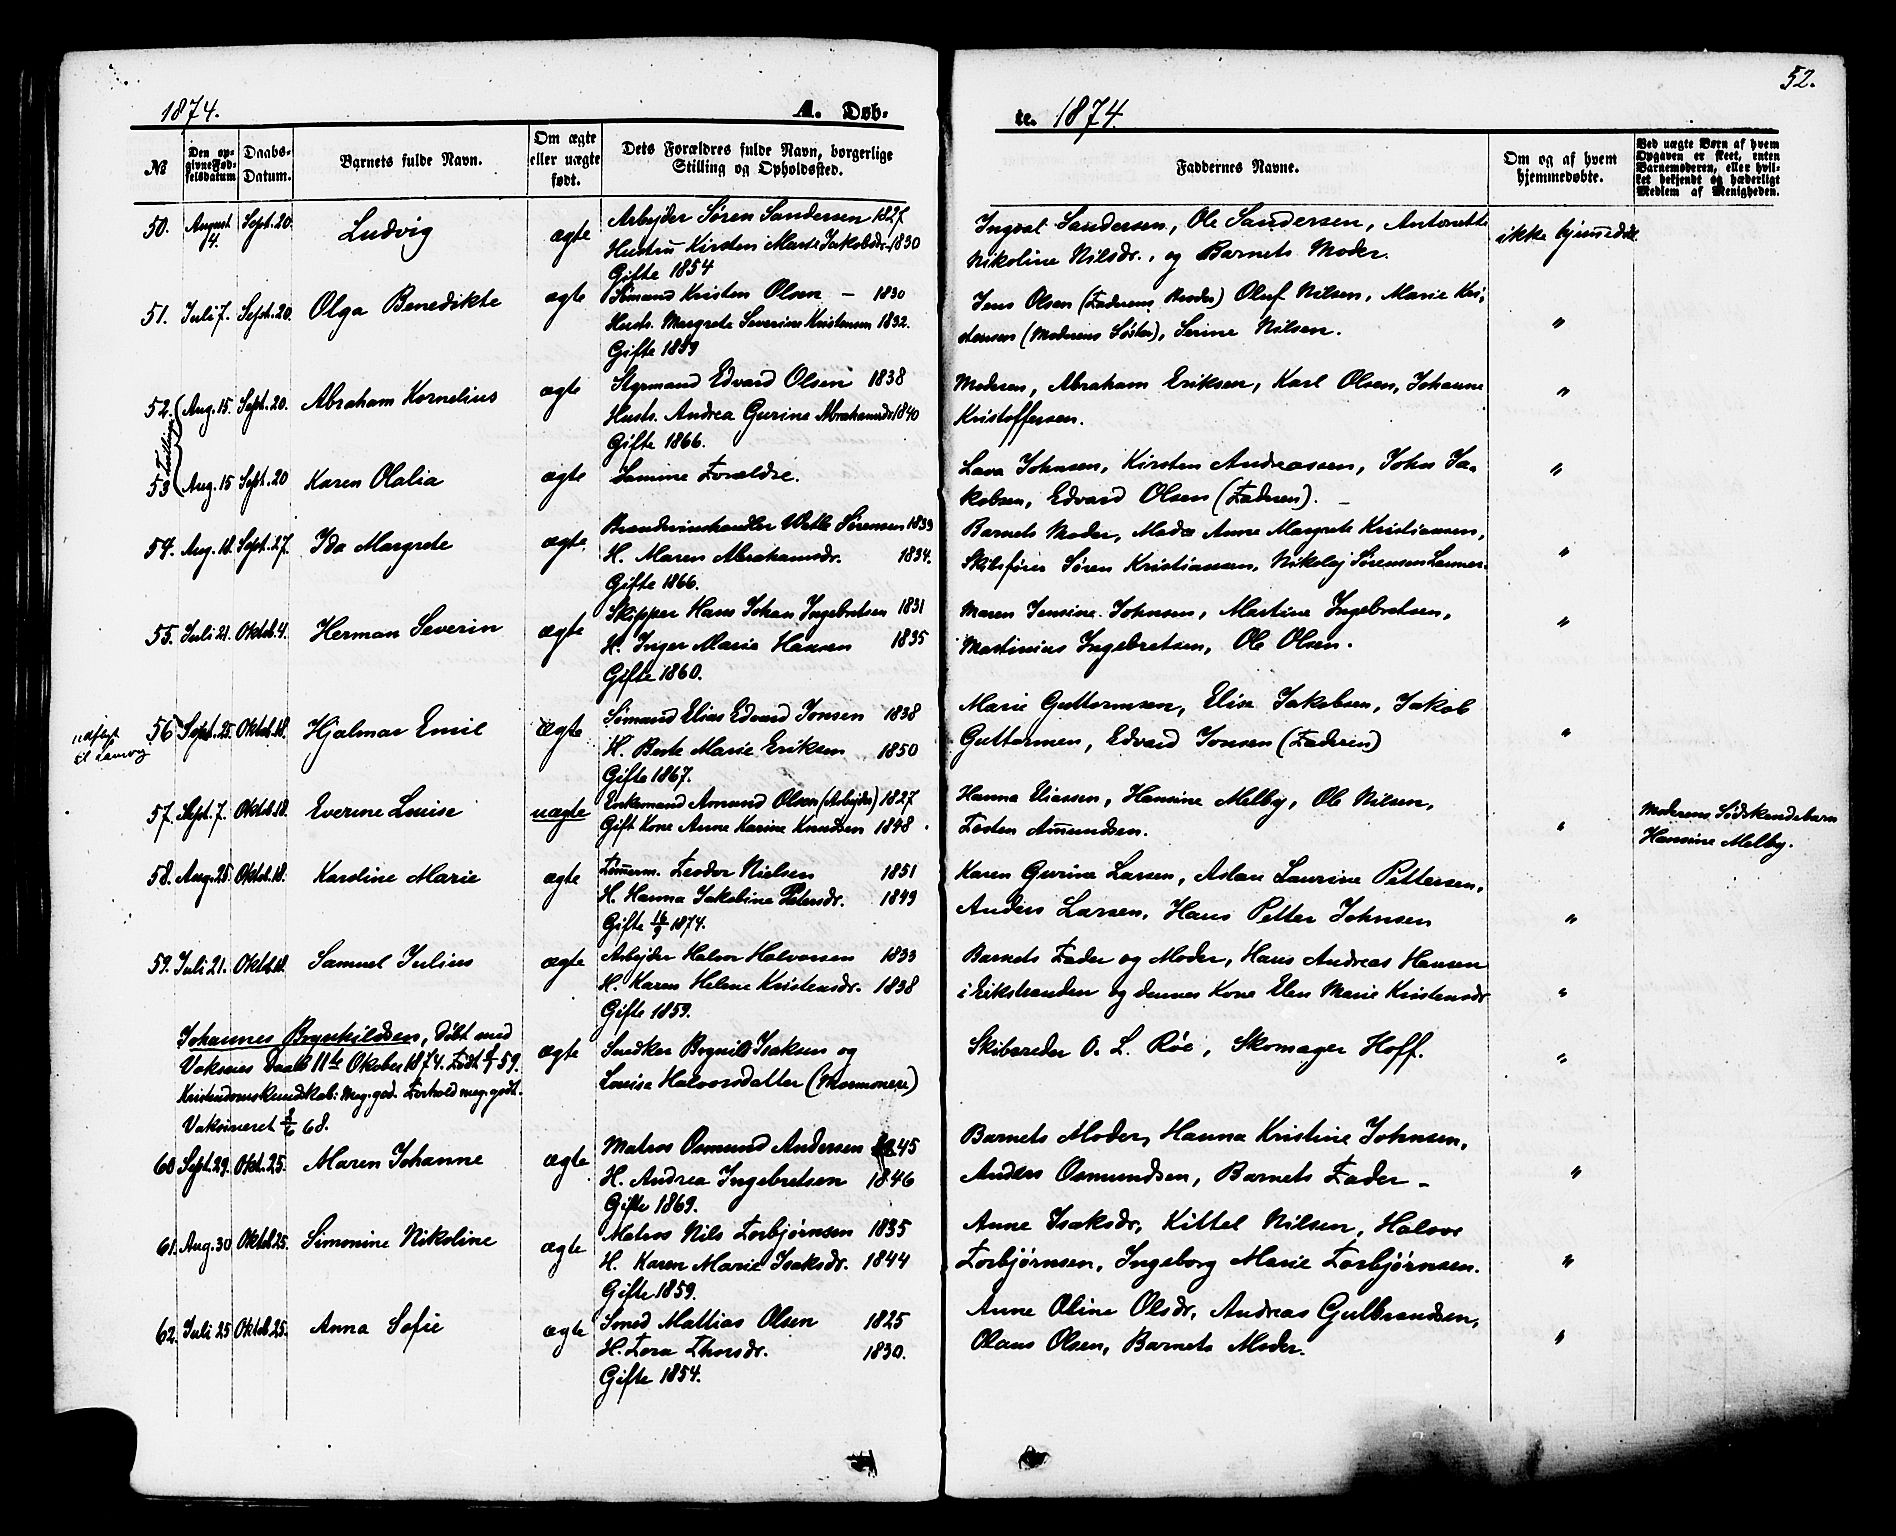 52.
1874. A. Døb-
te. 1874.
№ Den op-givne Fød-selsdatum Daabs-Datum. Barnets fulde Navn. Om ægte eller uægte født. Dets Forældres fulde Navn, borgerlige Stilling og Opholdssted.
Faddernes Navne. Om og af hvem hjemmedøbte. Ved uægte Børn af hvem Opgaven er skeet, enten Barnemoderen, eller hvil-ket bekjendt og hæderligt Medlem af Menigheden.
50. August 4. Sept. 20. Ludvig ægte Arbejder Søren Sandersen 1827
Hustru Kirsten Marie Jakobsdr. 1830
Gifte 1854
Ingvat Sandersen, Ole Sandersen, Antonette
Nikoline Nilsdr., og Barnets Moder.
ikke hjemmedøbt
51. Juli 7. Sept. 20. Olga Benedikte ægte Sømand Kristen Olsen – 1830
Hustr. Margrete Severine Kristensen 1832.
Gifte 1859
Jens Olsen (Faderens Broder) Oluf Nilsen, Marie Kri-
stensen (Moderens Søster), Serine Nilsen.
"
52. Tvillinger Aug. 15. Sept. 20. Abraham Kornelius ægte Styrmand Edvard Olsen 1838
Hustr. Andrea Gurine Abrahamsdr 1840
Gifte 1866.
Moderen, Abraham Eriksen, Karl Olsen, Johanne
Kristoffersen.
"
53 Aug. 15 Sept. 20 Karen Olalia ægte Samme Forældre.
Lava Johnsen, Kirsten Andreassen, John Ja-
kobsen, Edvard Olsen (Faderen). –
"
54. Aug. 18. Sept. 27. Ida Margrete ægte Brændevinshandler Wetle Sørensen 1833
H. Maren Abrahamsdr. 1834.
Gifte 1866.
Barnets Moder, Mada Anne Margrete Kristiansen,
Skibsfører Søren Kristiansen, Nikolaj Sørensen
"
55. Juli 21. Oktob. 4. Herman Severin ægte Skipper Hans Johan Ingebretsen 1831
H. Inger Marie Hansen 1835
Gifte 1860.
Maren Jensine Johnsen, Martine Ingebretsen,
Martinius Ingebretsen, Ole Olsen.
"
udflyt til
56 Sept. 25. Oktob. 18. Hjalmar Emil Ægte Sømand Elias Edvard Jonsen 1838
H. Berte Marie Eriksen 1850
Gifte 1867.
Marie Guttormsen, Elise Jakobsen, Jakob
Guttormsen, Edvard Jonsen (Faderen)
"
57. Sept. 7. Oktob. 18. Everine Louise uægte Enkemand Amund Olsen (Arbejder) 1827
Gift Kone Anne Karine Knudsen 1848.
Hanna Eliassen, Hansine Melby, Ole Nilsen,
Torsten Amundsen.
"
Moderens Sødskendebarn
Hansine Melby.
58. Aug. 25. Oktob. 18. Karoline Marie ægte Tømerm. Teodor Nielsen 1851
H. Hanna Jakobine Petersdr. 1849
Gifte 16/9 1874.
Karen Gurine Larsen, Aslau Laurine Pettersen,
Anders Larsen, Hans Petter Johnsen
"
59. Juli 21. Oktob. 18. Samuel Julius ægte Arbejder Halvor Halvorsen 1833
H. Karen Helene Kristensdr. 1838
Gifte 1859.
Barnets Fader og Moder, Hans Andreas Hansen
i Eikstranden og dennes Kone Elen Marie Kristensdr
"
Johannes Brynhildsen, Døbt med
Voksnes Daab 11te Oktober 1874. Født 59.
Kristendomskundskab: Meg. god. Forhold meg. godt.
Vaksineret 68.
ægte Snedker Brynild Isaksen og
Louise Halvorsdatter (Mormonere)
Skibsreder O. L. Røe, Skomager Hoff.
"
60 Sept. 29. Okt. 25. Maren Johanne ægte Matros Osmund Andersen 1845
H. Andrea Ingebretsen 1846
Gifte 1869.
Barnets Moder, Hanna Kristine Johnsen,
Anders Osmundsen, Barnets Fader –
"
61. Aug. 30 Oktob. 25. Simonine Nikoline ægte Matros Nils Torbjørnsen 1835
H. Karen Marie Isaksdr. 1844
Gifte 1859.
Anne Isaksdr., Kittel Nilsen, Halvor
Torbjørnsen, Ingeborg Marie Torbjørnsen.
"
62. Juli 25 Oktob. 25. Anna Sofie ægte Smed Mattias Olsen 1825
H. Tora Thorsdr. 1830.
Gifte 1854.
Anne Oline Olsdr., Andreas Gulbrandsen,
Olaus Olsen, Barnets Moder.
"